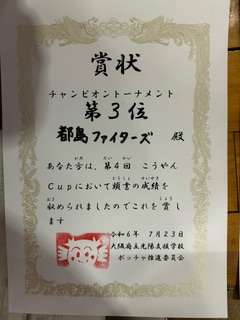 賞状
チャンピオントーナメント
第3位
都島ファイターズ 殿
あなた方は、第4回 こうやん
Cupにおいて頭書の成績を
収められましたのでこれを賞し
ます
令和6年 7月23日
大阪府立光陽支援学校
ボッチャ推進委員会